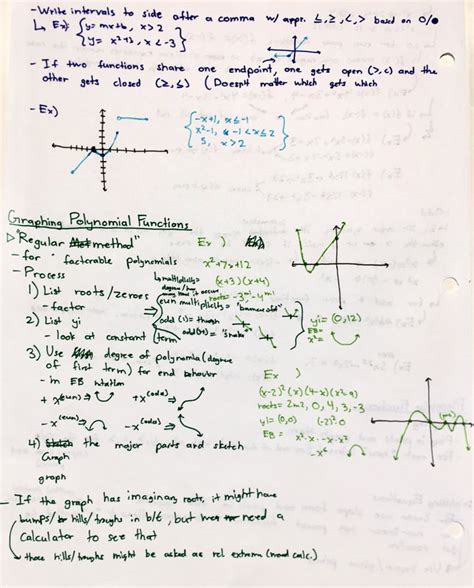 - Write intervals to side after a comma w/ appr. ≤, ≥, <, > based on O/●
↳ Ex: { y = mx+b, x > 2
{ y = x²+3, x < -3 }
- If two functions share one endpoint, one gets open (>, <) and the
other gets closed (≥, ≤) (Doesn't matter which gets which
- Ex)
{ -x+1, x ≤ -1
x²-1, -1 < x ≤ 2
5, x > 2 }
Graphing Polynomial Functions
"Regular method"
- for factorable polynomials
- Process
1) List roots/zeroes
- factor
2) List yi
- look at constant term
3) Use degree of polynomial (degree
of first term) for end behavior
- in EB notation
+x^(even) = -x^(even) = +x^(odd) = -x^(odd) =
4) the major parts and sketch
Graph
graph
Ex)
x²+7x+12
(x+3)(x+4)
roots= -3^m1 -4^m1
↳ multiplicity=
degree/how
many times it occurs
even multiplicity= "bounce off"
odd (1)= though
odd (3+)= "snake"
yi= (0,12)
EB=
x²=
Ex)
(x-2)²(x)(4-x)(x²-9)
roots= 2m2, 0, 4, 3, -3
yi= (0,0) (-2)²·0
EB=
x²·x·-x·x²
-x⁶=
(m2)
- If the graph has imaginary roots, it might have
bumps/hills/troughs in b/t, but need a
calculator to see that
↳ those hills/troughs might be asked as rel extrema (need calc.)